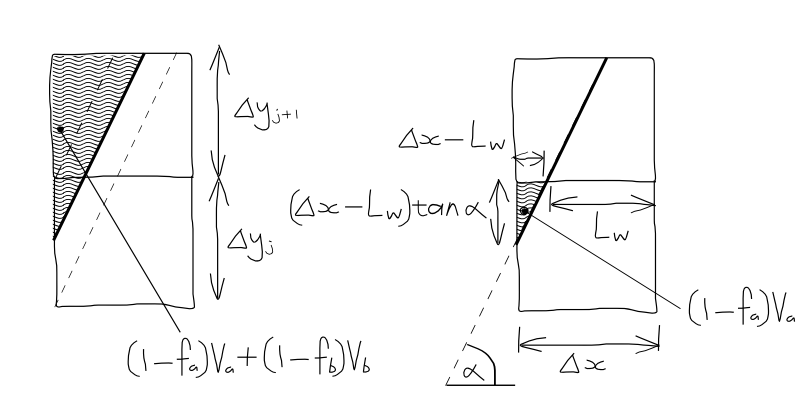 Δy_{j+1}
Δy_j
(1-f_a)V_a+(1-f_b)V_b
Δx-L_w
(Δx-L_w)tanα
L_w
(1-f_a)V_a
Δx
α